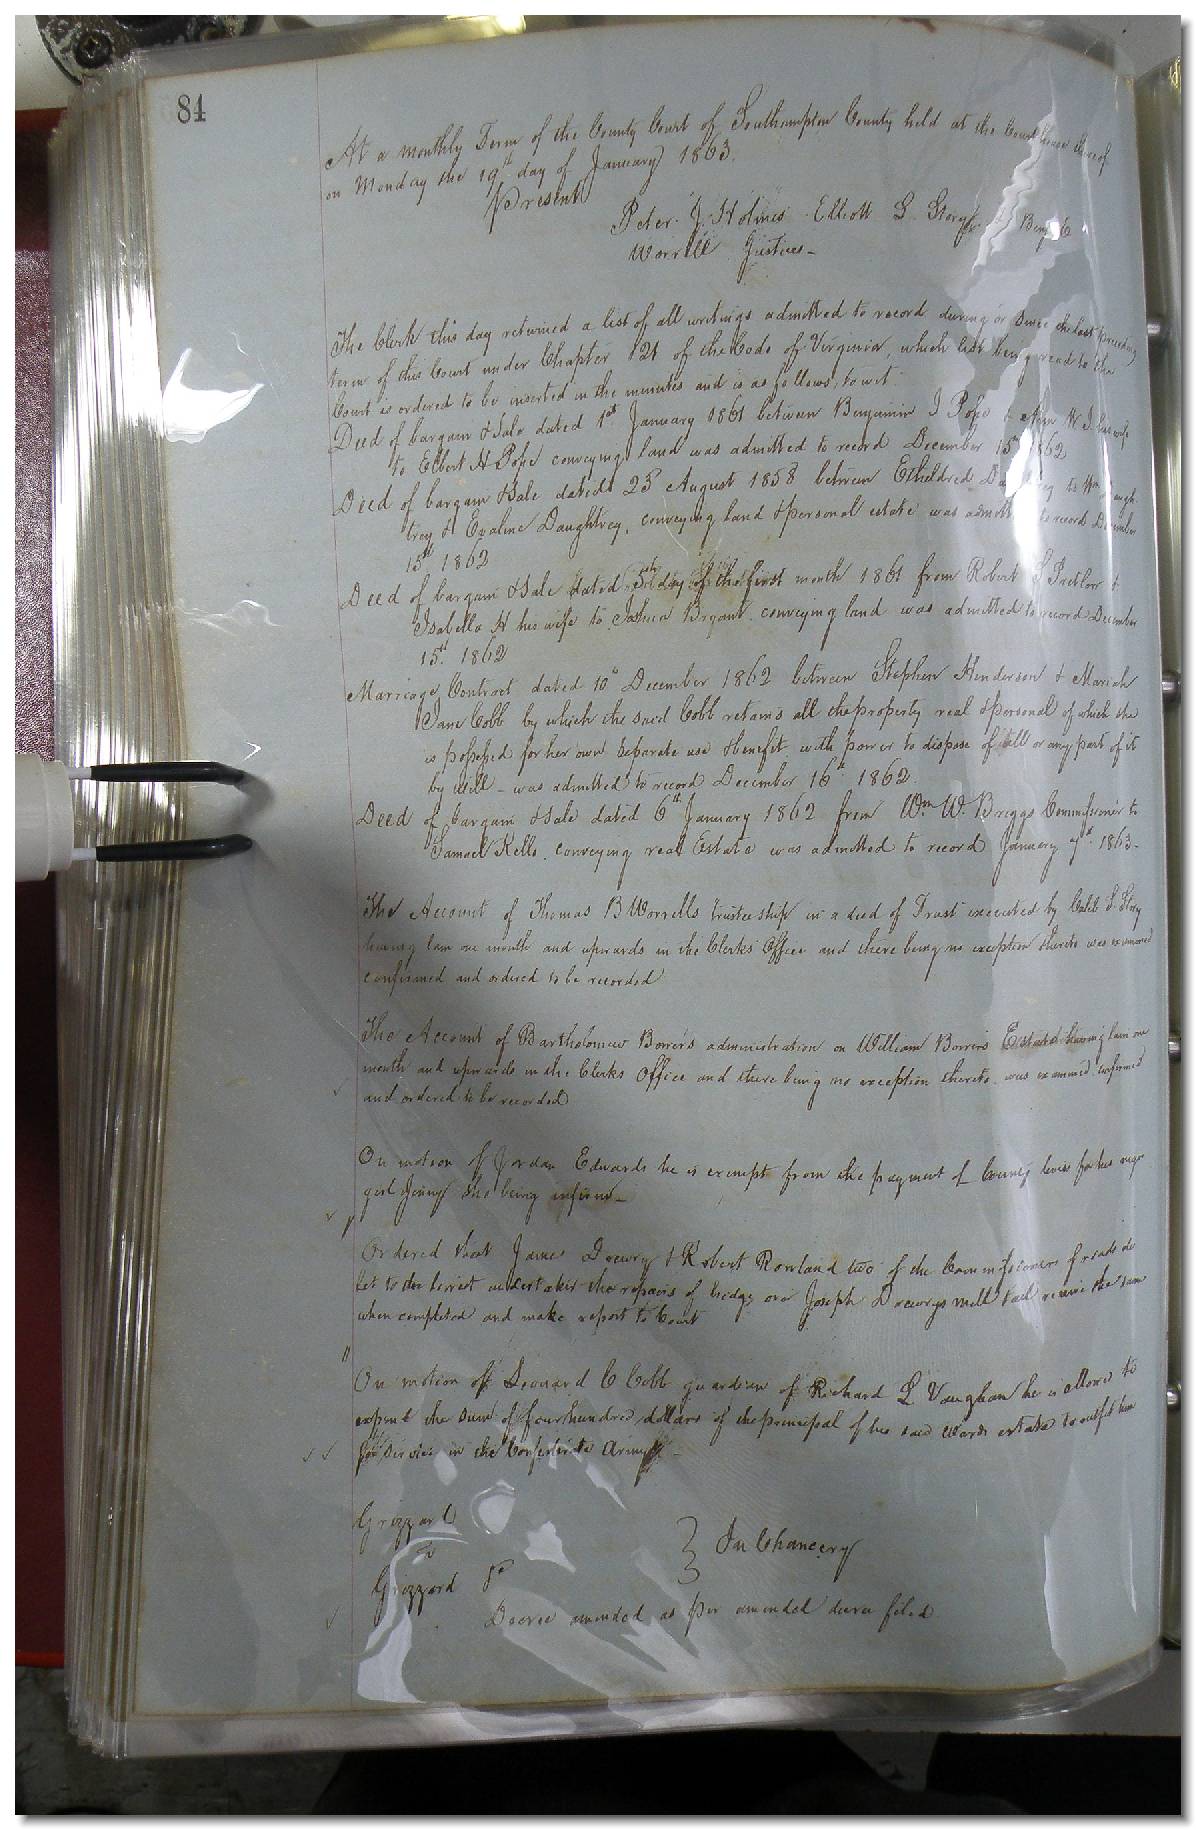 84
At a monthly Term of the County Court of Southampton County held at the Courthouse thereof
on Monday the 19th day of January 1863.
Present
Peter J. Holmes Elliott L. Story & Benj. C
Worrell Justices -
The Clerk this day returned a list of all writings admitted to record during or since the last preceding
term of this Court under Chapter 121 of the Code of Virginia, which list being read to the
Court is ordered to be inserted in the minutes and is as follows, to wit.
Deed of bargain & Sale dated 1st January 1861 between Benjamin J Pope & his wife
to Elbert H Pope conveying land was admitted to record December 15th 1862
Deed of bargain & Sale dated 23d August 1858 between Etheldred Daughtrey to Wm Daugh-
trey & Evaline Daughtrey, conveying land & personal estate was admitted to record December
15th 1862
Deed of bargain & Sale dated 5th day of the first month 1861 from Robert S Pretlow &
Isabella H his wife to Bryant conveying land was admitted to record December
15th. 1862
Marriage Contract dated 10th December 1862 between Stephen Henderson & Mariah
Jane Cobb by which the said Cobb retains all the property real & personal of which she
is possessed for her own separate use & benefit with power to dispose of all or any part of it
by will - was admitted to record December 16th 1862.
Deed of bargain & Sale dated 6th January 1862 from Wm. W. Briggs Commissioner to
Samuel Kello. conveying real Estate was admitted to record January 7th 1863-
The Account of Thomas B Worrells trusteeship in a deed of Trust executed by Caleb S. Story
having lain one month and upwards in the Clerks Office and there being no exception thereto was examined
confirmed and ordered to be recorded
The Account of Bartholomew Borrers administration on William Borrers Estate having lain one
month and upwards in the Clerks Office and there being no exception thereto was examined confirmed
and ordered to be recorded
On motion of Jordan Edwards he is exempt from the payment of County levies for his negro
girl Jenny she being infirm -
Ordered that James Drewry & Robert Rowland two of the Commissioners of roads do
let to the lowest undertaker the repairs of bridge over Joseph Drewrys mill tail receive the same
when completed and make report to Court
On motion of Leonard C Cobb guardian of Richard L Vaughan he is allowed to
expend the sum of four hundred dollars of the principal of his said Wards estate to outfit him
for service in the Confederate Army -
Grizzard
vs
Grizzard
In Chancery
Decree amended as per amended decree filed